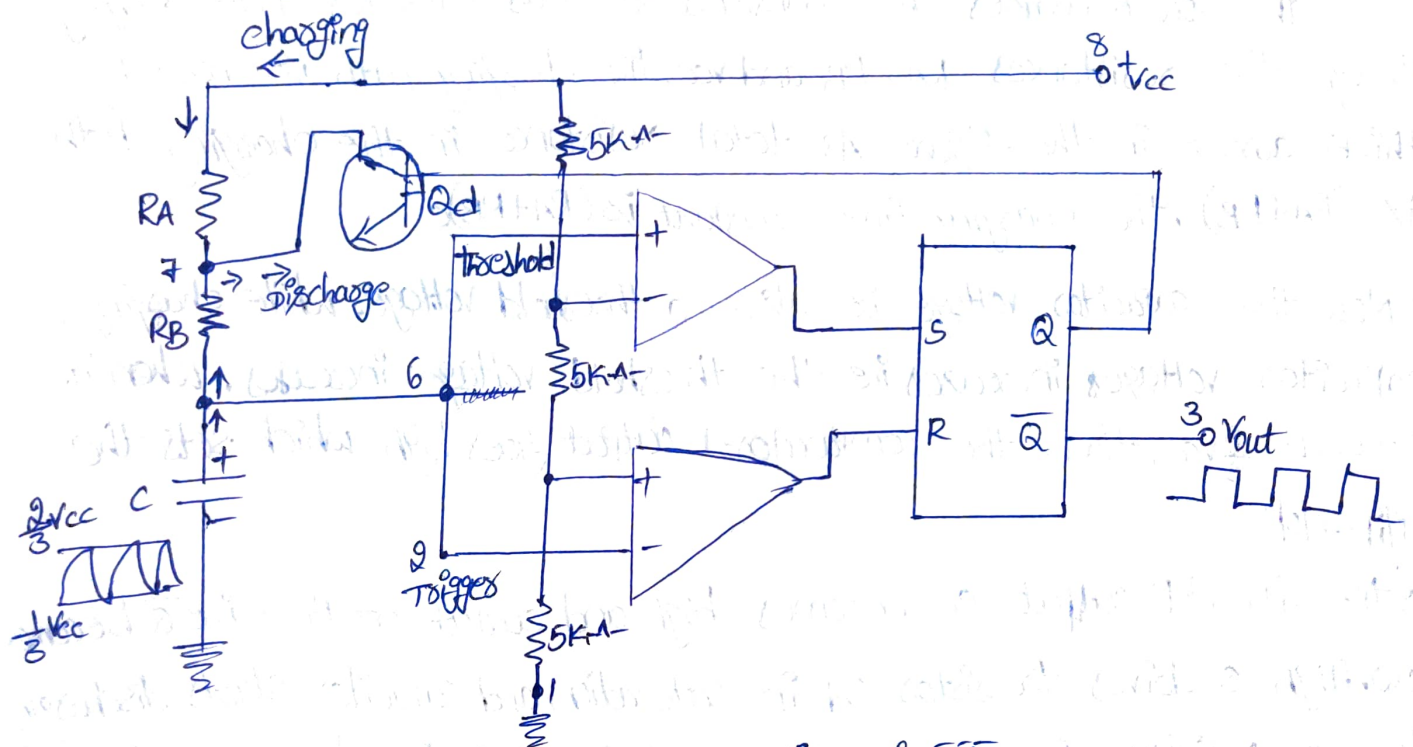 charging
8
+Vcc
5KΩ
RA
Qd
7
Discharge
threshold
+
-
RB
S
Q
6
5KΩ
R
Q̅
3
Vout
+
C
-
2/3 Vcc
+
-
2
Trigger
1/3 Vcc
5KΩ
1